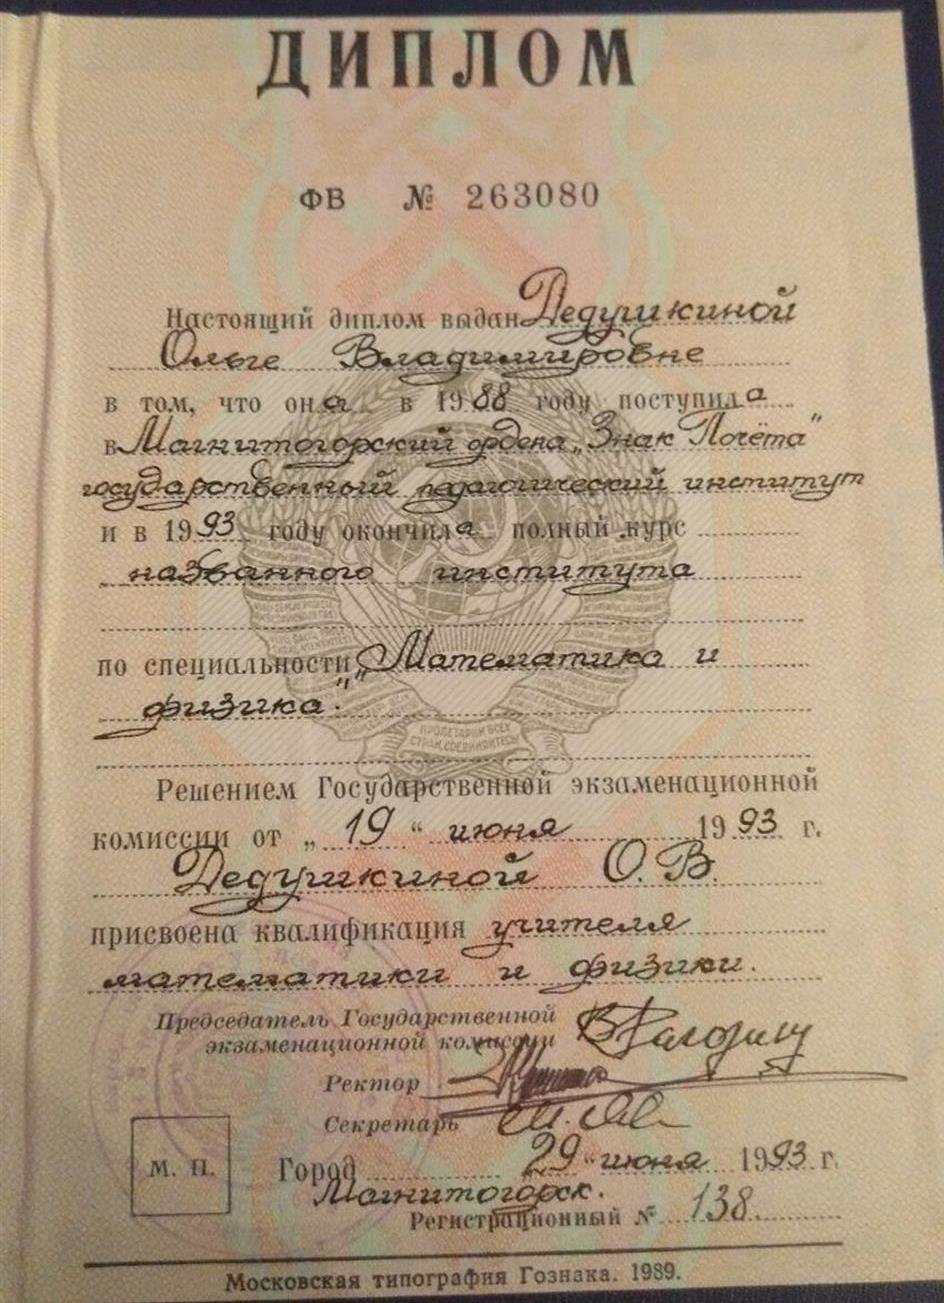 ДИПЛОМ
ФВ № 263080
Настоящий диплом выдан Дедушкиной
Ольге Владимировне
в том, что она в 1988 году поступила
в Магнитогорский ордена „Знак Почёта"
государственный педагогический институт
и в 1993 году окончила полный курс
названного института
по специальности „Математика и
физика."
ПРОЛЕТАРИИ ВСЕХ
СТРАН, СОЕДИНЯЙТЕСЬ!
Решением Государственной экзаменационной
комиссии от „19" июня 1993 г.
Дедушкиной О. В.
присвоена квалификация учителя
математики и физики.
Председатель Государственной
экзаменационной комиссии
Ректор
Секретарь
М. П. Город 29 "июня 1993 г.
Магнитогорск.
Регистрационный № 138.
Московская типография Гознака. 1989.